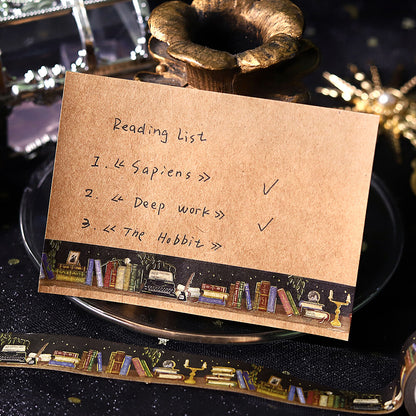 Reading List
1. 《Sapiens》 ✓
2. 《Deep work》 ✓
3. 《The Hobbit》